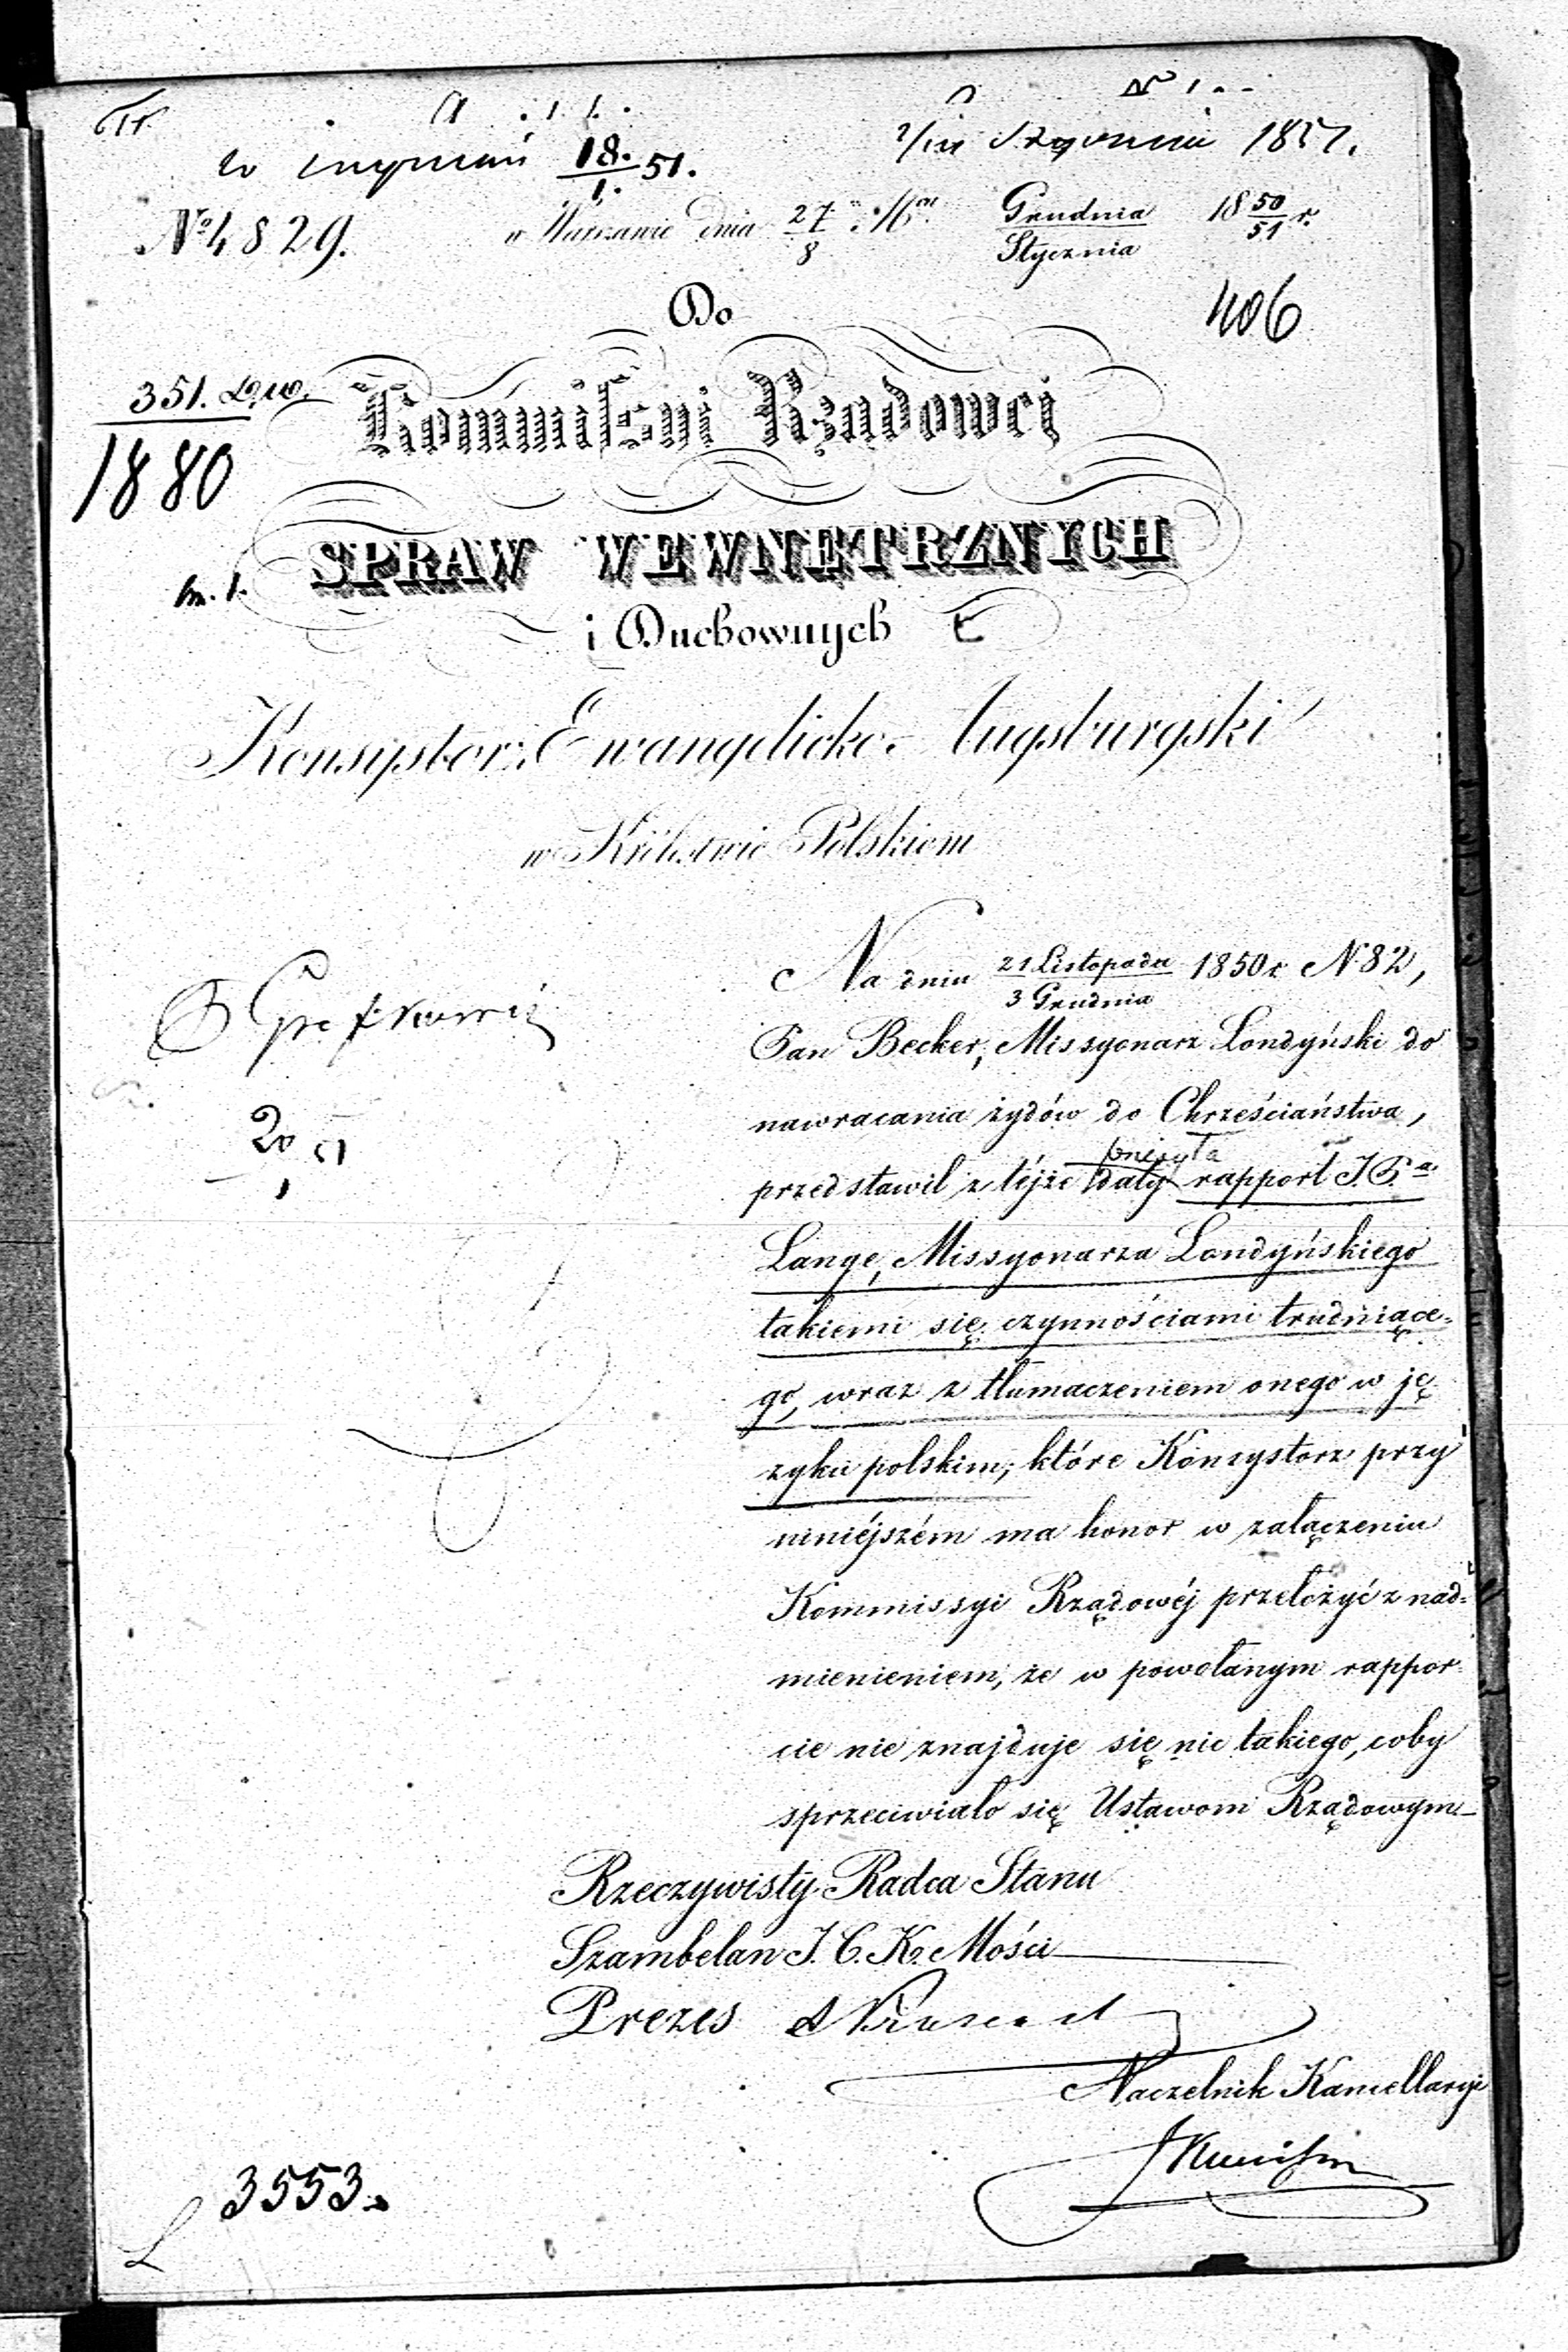 18./1. 51.
Stycznia 1851.
№ 4829.
w Warszawie dnia 27/8 Grudnia/Stycznia 18 50/51 r.
Do
406
351.
1880
Kommissyi Rządowej
SPRAW WEWNĘTRZNYCH
i Duchownych
Konsystorz Ewangelicko-Augsburgski
w Królestwie Polskiem
Na dniu 21 Listopada/3 Grudnia 1850 r. N 82,
Pan Becker, Missyonarz Londyński do
nawracania żydów do Chrześciaństwa,
przedstawił z téjże daty rapport J. P.a
20/1 51
Lange, Missyonarza Londyńskiego
takiemi się czynnościami trudniące-
go, wraz z tłumaczeniem onego w ję-
zyku polskim; które Konsystorz przy
niniéjszém ma honor w załączeniu
Kommissyi Rządowéj przełożyć z nad-
mienieniem, że w powołanym rappor-
cie nie znajduje się nic takiego, coby
sprzeciwiało się Ustawom Rządowym
Rzeczywisty Radca Stanu
Szambelan J. C. K. Mości
Prezes
Naczelnik Kancellaryi
3553.